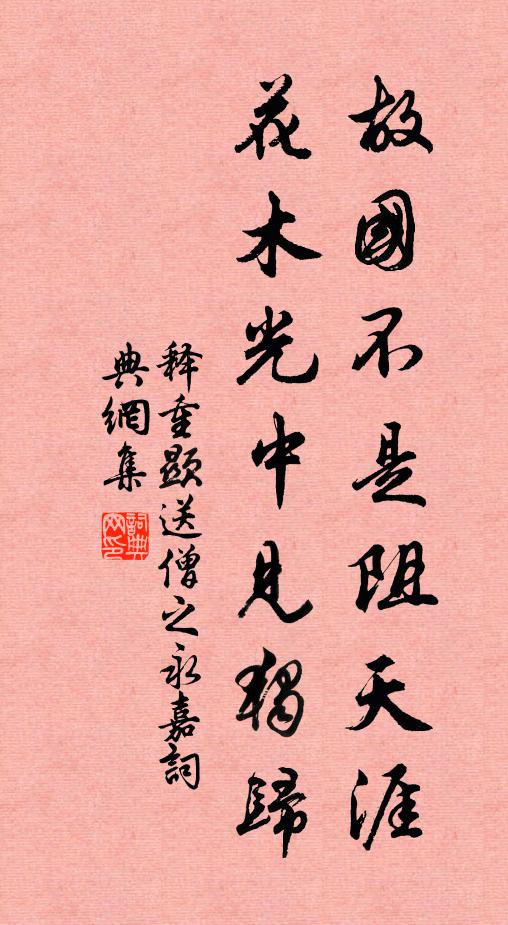 故國不是阻天涯
花木光中見獨歸
释重顯送僧之永嘉詞
典網集
詞典
网印